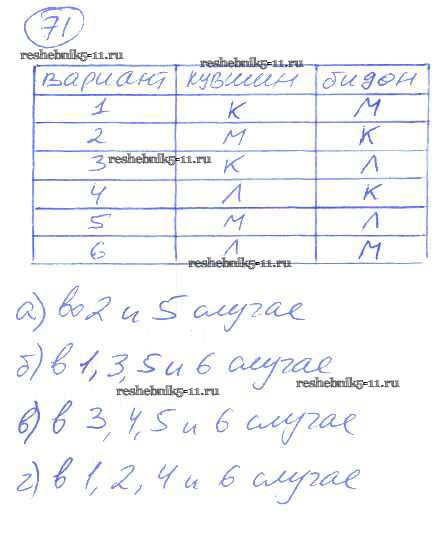 71
reshebnik5-11.ru
reshebnik5-11.ru
вариант кувшин бидон
1 К М
2 М К
reshebnik5-11.ru
3 К Л
reshebnik5-11.ru
4 Л К
5 М Л
6 Л М
reshebnik5-11.ru
а) во 2 и 5 случае
б) в 1, 3, 5 и 6 случае
reshebnik5-11.ru
reshebnik5-11.ru
в) в 3, 4, 5 и 6 случае
г) в 1, 2, 4 и 6 случае
reshebnik5-11.ru